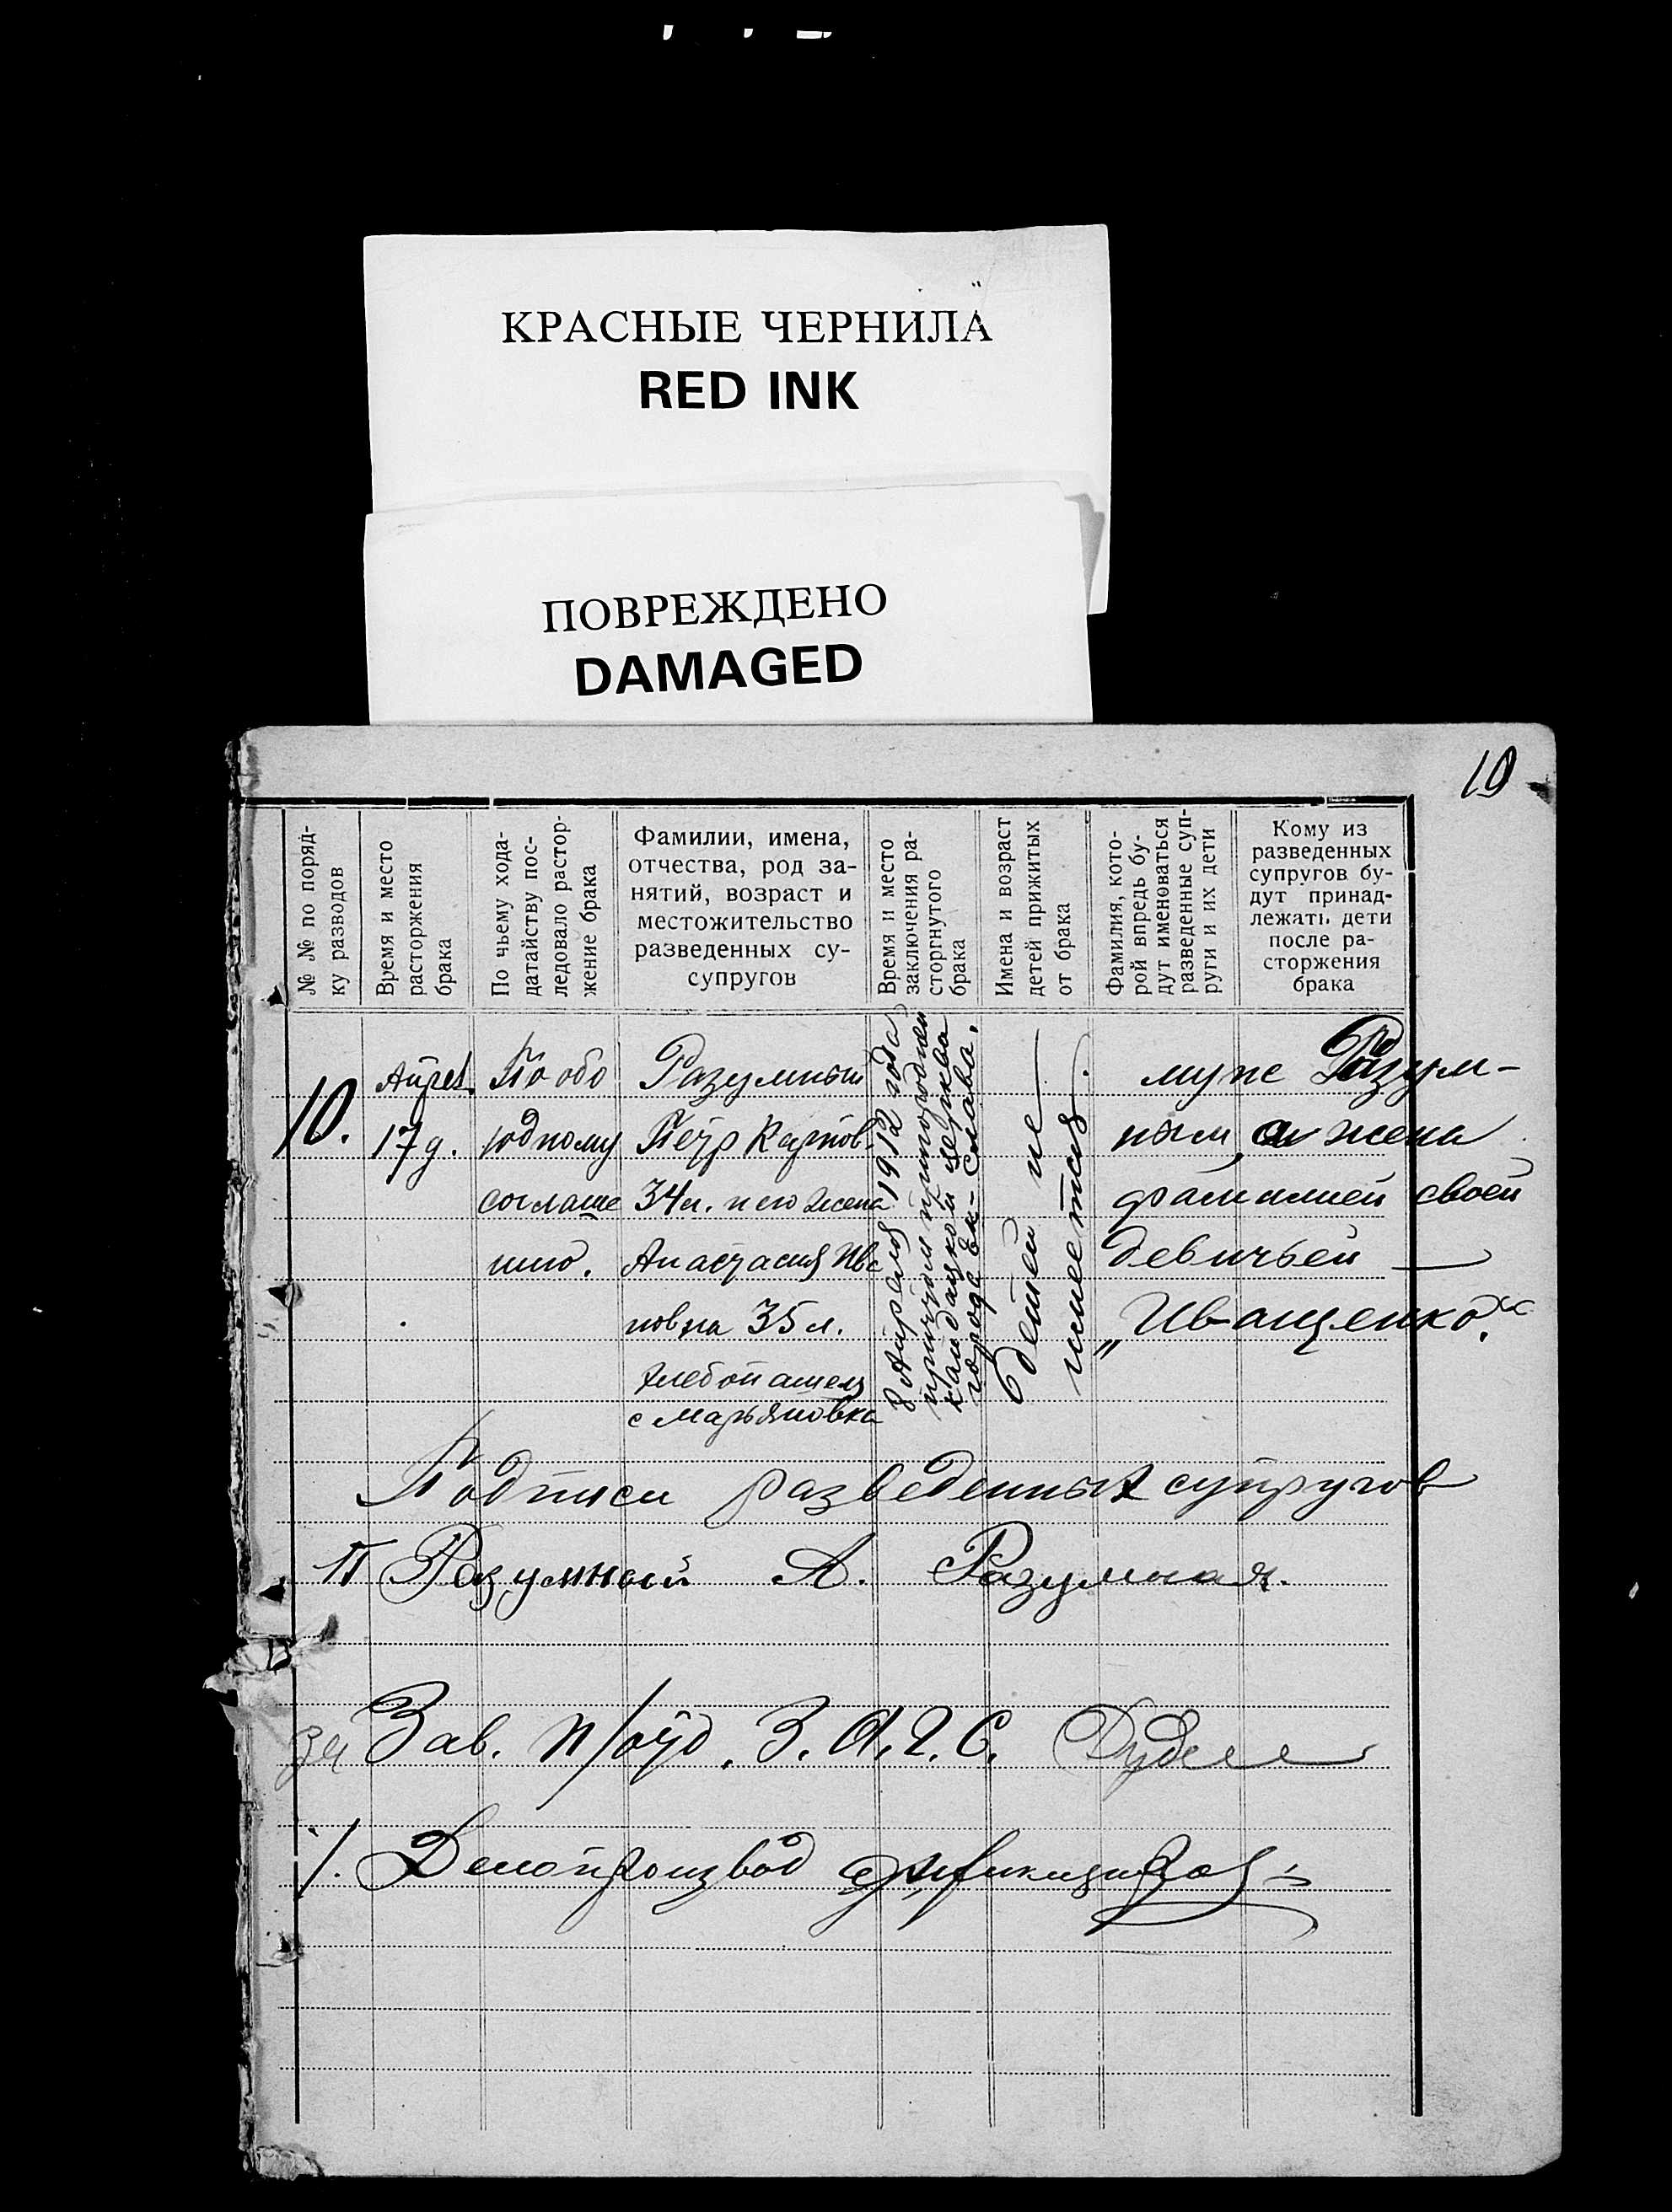 КРАСНЫЕ ЧЕРНИЛА
RED INK
ПОВРЕЖДЕНО
DAMAGED
10
№ № по поряд-
ку разводов
Время и место
расторжения
брака
По чьему хода-
датайству пос-
ледовало растор-
жение брака
Фамилии, имена,
отчества, род за-
нятий, возраст и
местожительство
разведенных су-
супругов
Время и место
заключения ра-
сторгнутого
брака
Имена и возраст
детей прижитых
от брака
Фамилия, кото-
рой впредь бу-
дут именоваться
разведенные суп-
руги и их дети
Кому из
разведенных
супругов бу-
дут принад-
лежать дети
после ра-
сторжения
брака
10.
Апрел.
17 д.
По обо
юдному
согласше
нию.
Разумный
Петр Карпов-
34 л. и его жена
Анастасия Ива
новна 35 л.
хлебопашец
с Марьяновка
8 Апреля 1912 года
причтом пригородней
кандацкой церква
города Ек-Слава.
детей не
имеется.
муже Разум-
ным, а жена
фамилией своей
девичьей —
„Иващенко."
Подписи разведенных супругов
П Разумный А. Разумная.
за Зав. п/отд. З.А.Г.С.
Делопроизвод